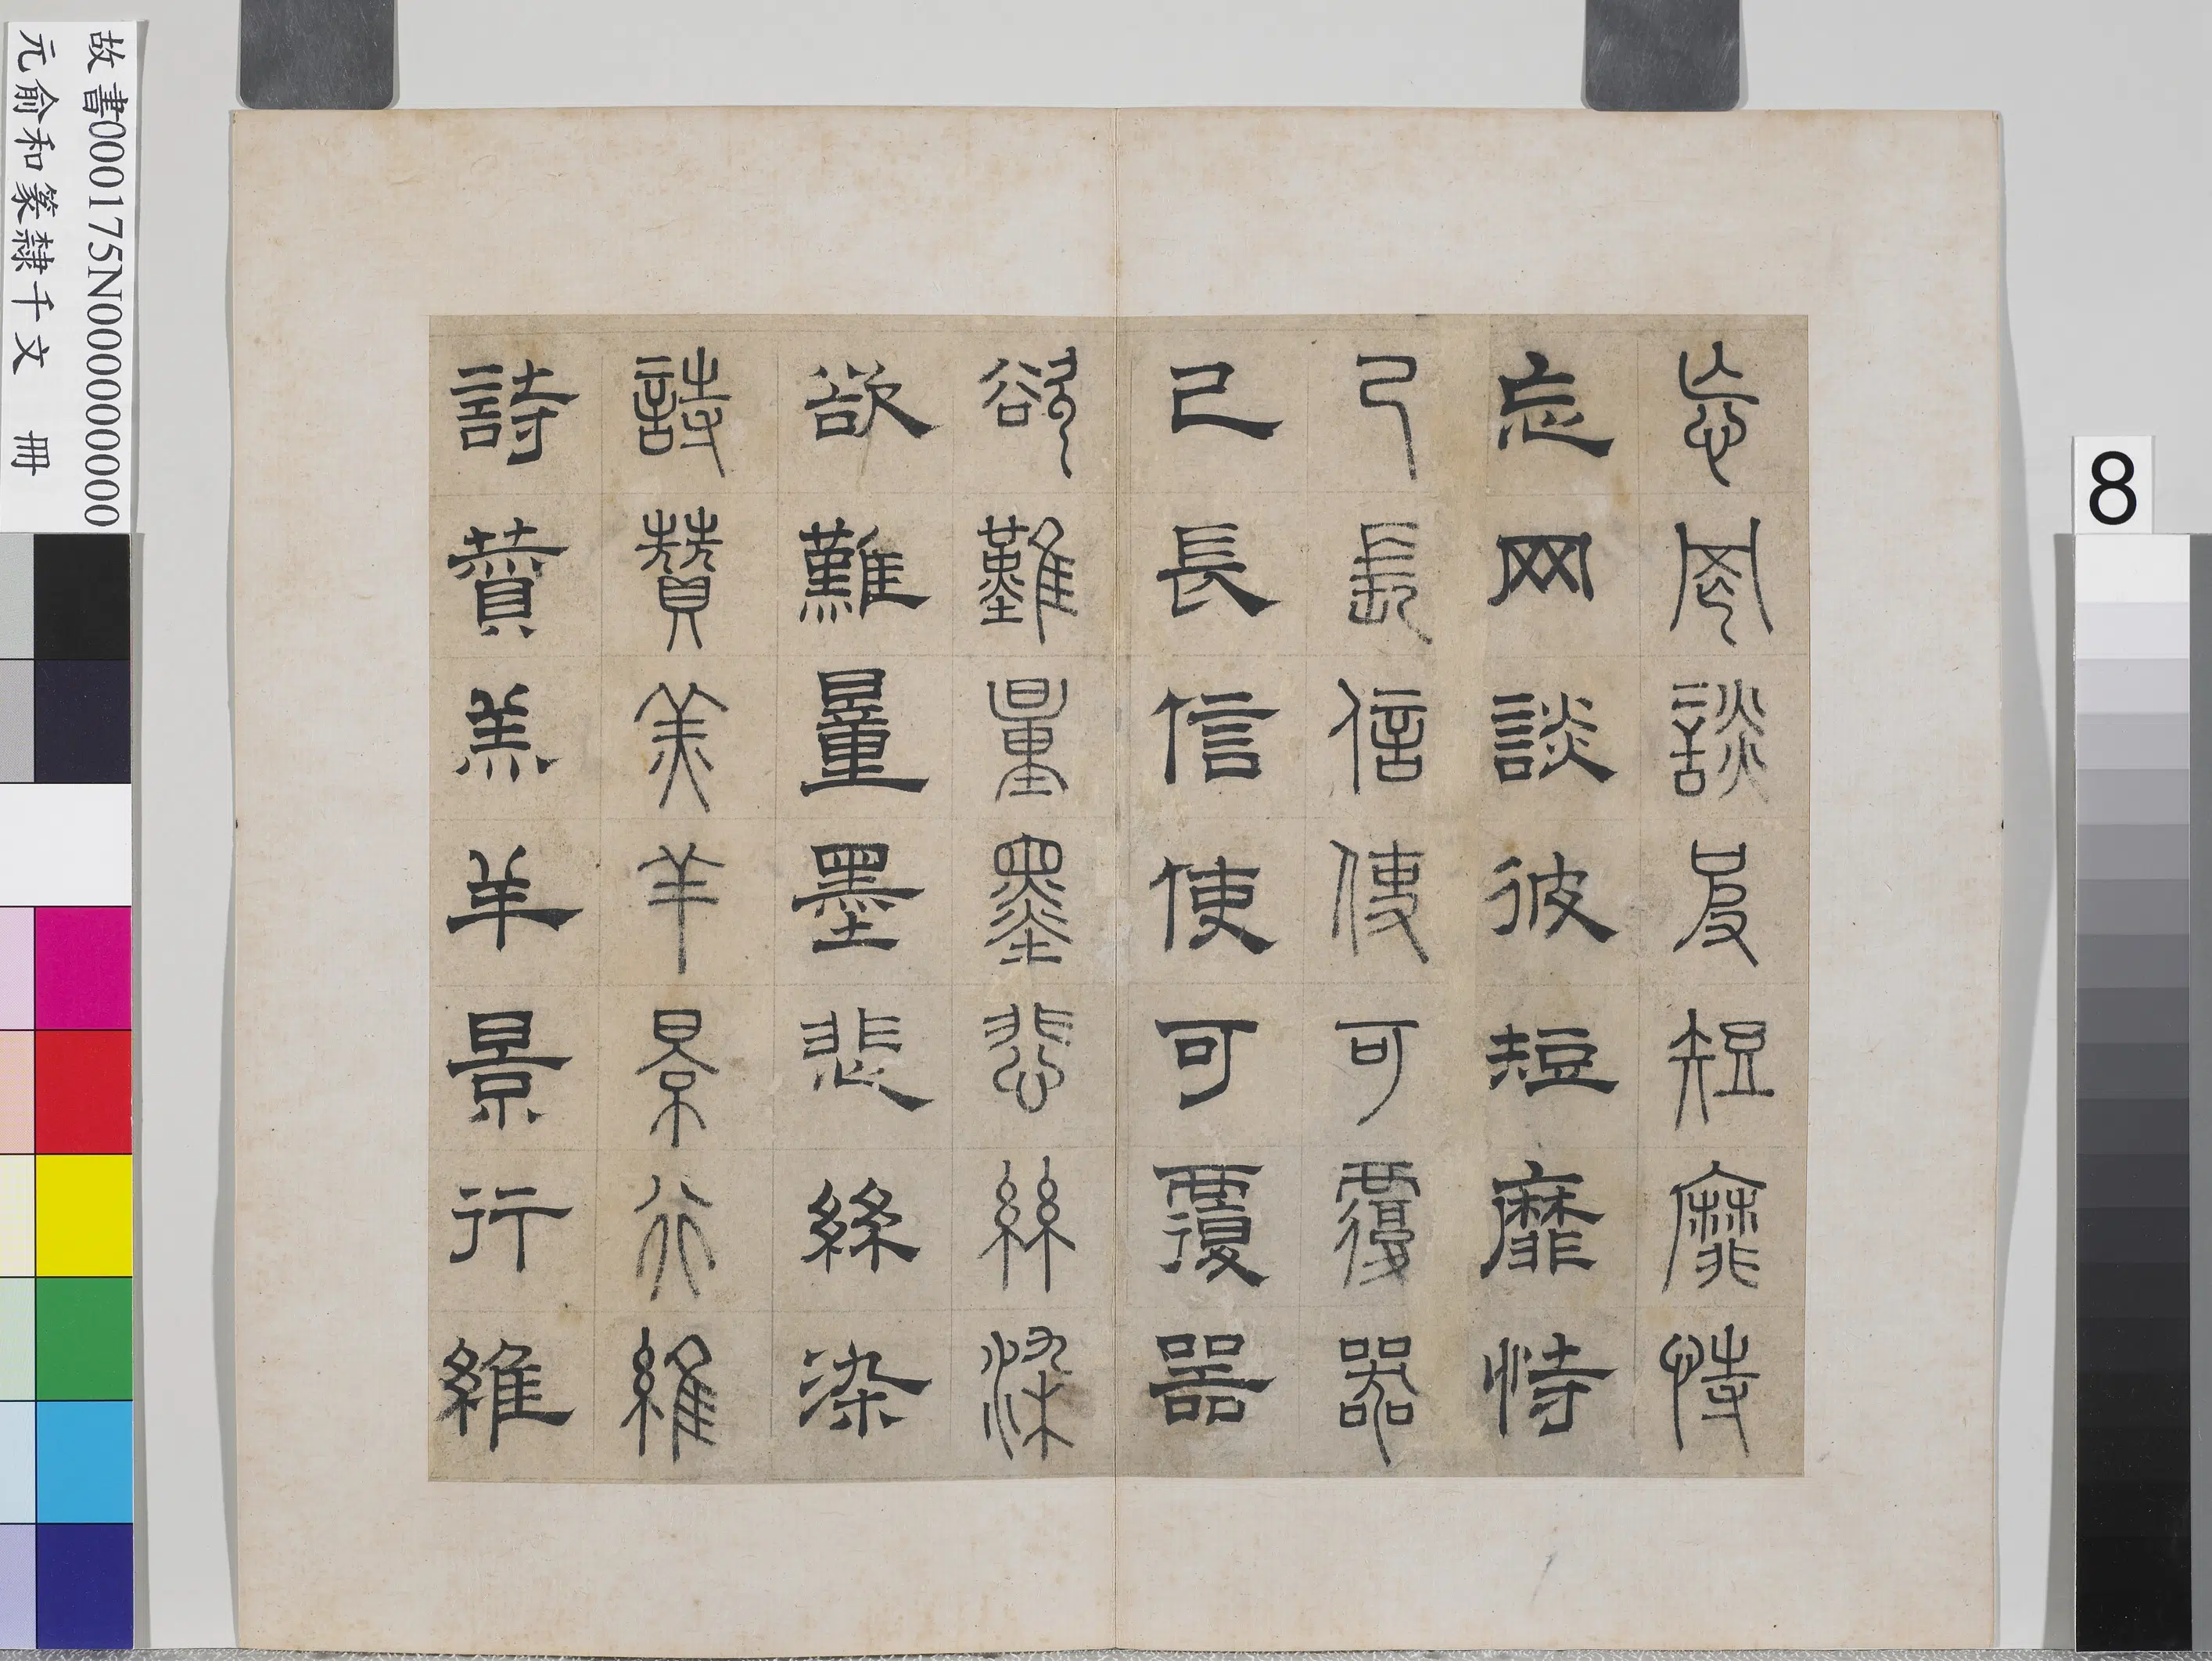 忘罔談彼短靡恃
忘网談彼短靡恃
己長信使可覆器
己長信使可覆器
欲難量墨悲絲染
欲難量墨悲絲染
詩贊羔羊景行維
詩贊羔羊景行維
故書000175N000000000
元俞和篆隸千文 冊
8